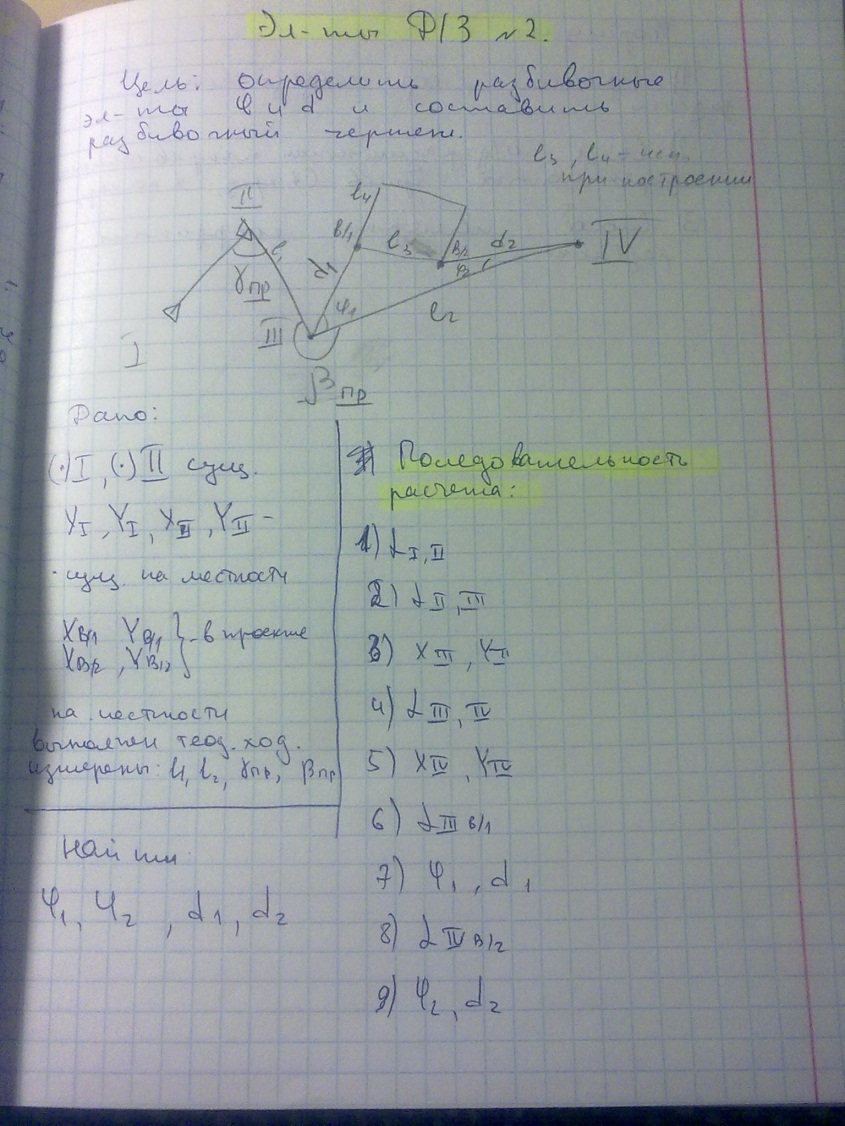 Эл-ты РГЗ №2.
Цель: определить разбивочные
эл-ты φ и d и составить
разбивочный чертеж.
l3, l4 - исп.
при построении
II
l4
В/1
l3
В/2
d2
IV
l1
γпр
d1
φ1
φ2
l2
III
I
βпр
Дано:
(·)I, (·)II сущ.
XI, YI, XII, YII -
сущ. на местности
XВ/1 YВ/1 } - в проекте
XВ/2, YВ/2
на местности
выполнен теод. ход.
измерены: l1, l2, γпр, βпр
Найти
φ1, φ2, d1, d2
Последовательность
расчета:
1) αI, II
2) αII, III
3) XIII, YIII
4) αIII, IV
5) XIV, YIV
6) αIII В/1
7) φ1, d1
8) αIV В/2
9) φ2, d2